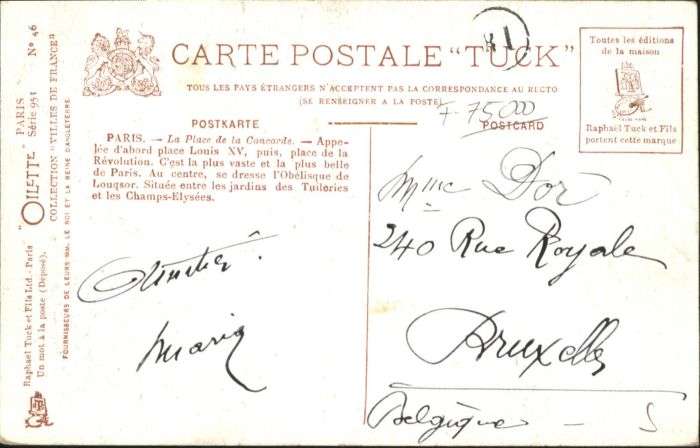 CARTE POSTALE "TUCK"
TOUS LES PAYS ÉTRANGERS N'ACCEPTENT PAS LA CORRESPONDANCE AU RECTO
(SE RENSEIGNER A LA POSTE)
F 75000
POSTKARTE
POSTCARD
PARIS. — La Place de la Concorde. — Appe-
lée d'abord place Louis XV, puis, place de la
Révolution. C'est la plus vaste et la plus belle
de Paris. Au centre, se dresse l'Obélisque de
Louqsor. Située entre les jardins des Tuileries
et les Champs-Elysées.
Maria
Toutes les éditions
de la maison
Raphaël Tuck et Fils
portent cette marque
Mme Dor
240 Rue Royale
Bruxelles
Belgique
"OILETTE" PARIS Nº 46
Série 951
COLLECTION "VILLES DE FRANCE"
FOURNISSEURS DE LEURS MM. LE ROI ET LA REINE D'ANGLETERRE
Raphaël Tuck et Fils Ltd.-Paris
Un mot à la poste (Déposé).